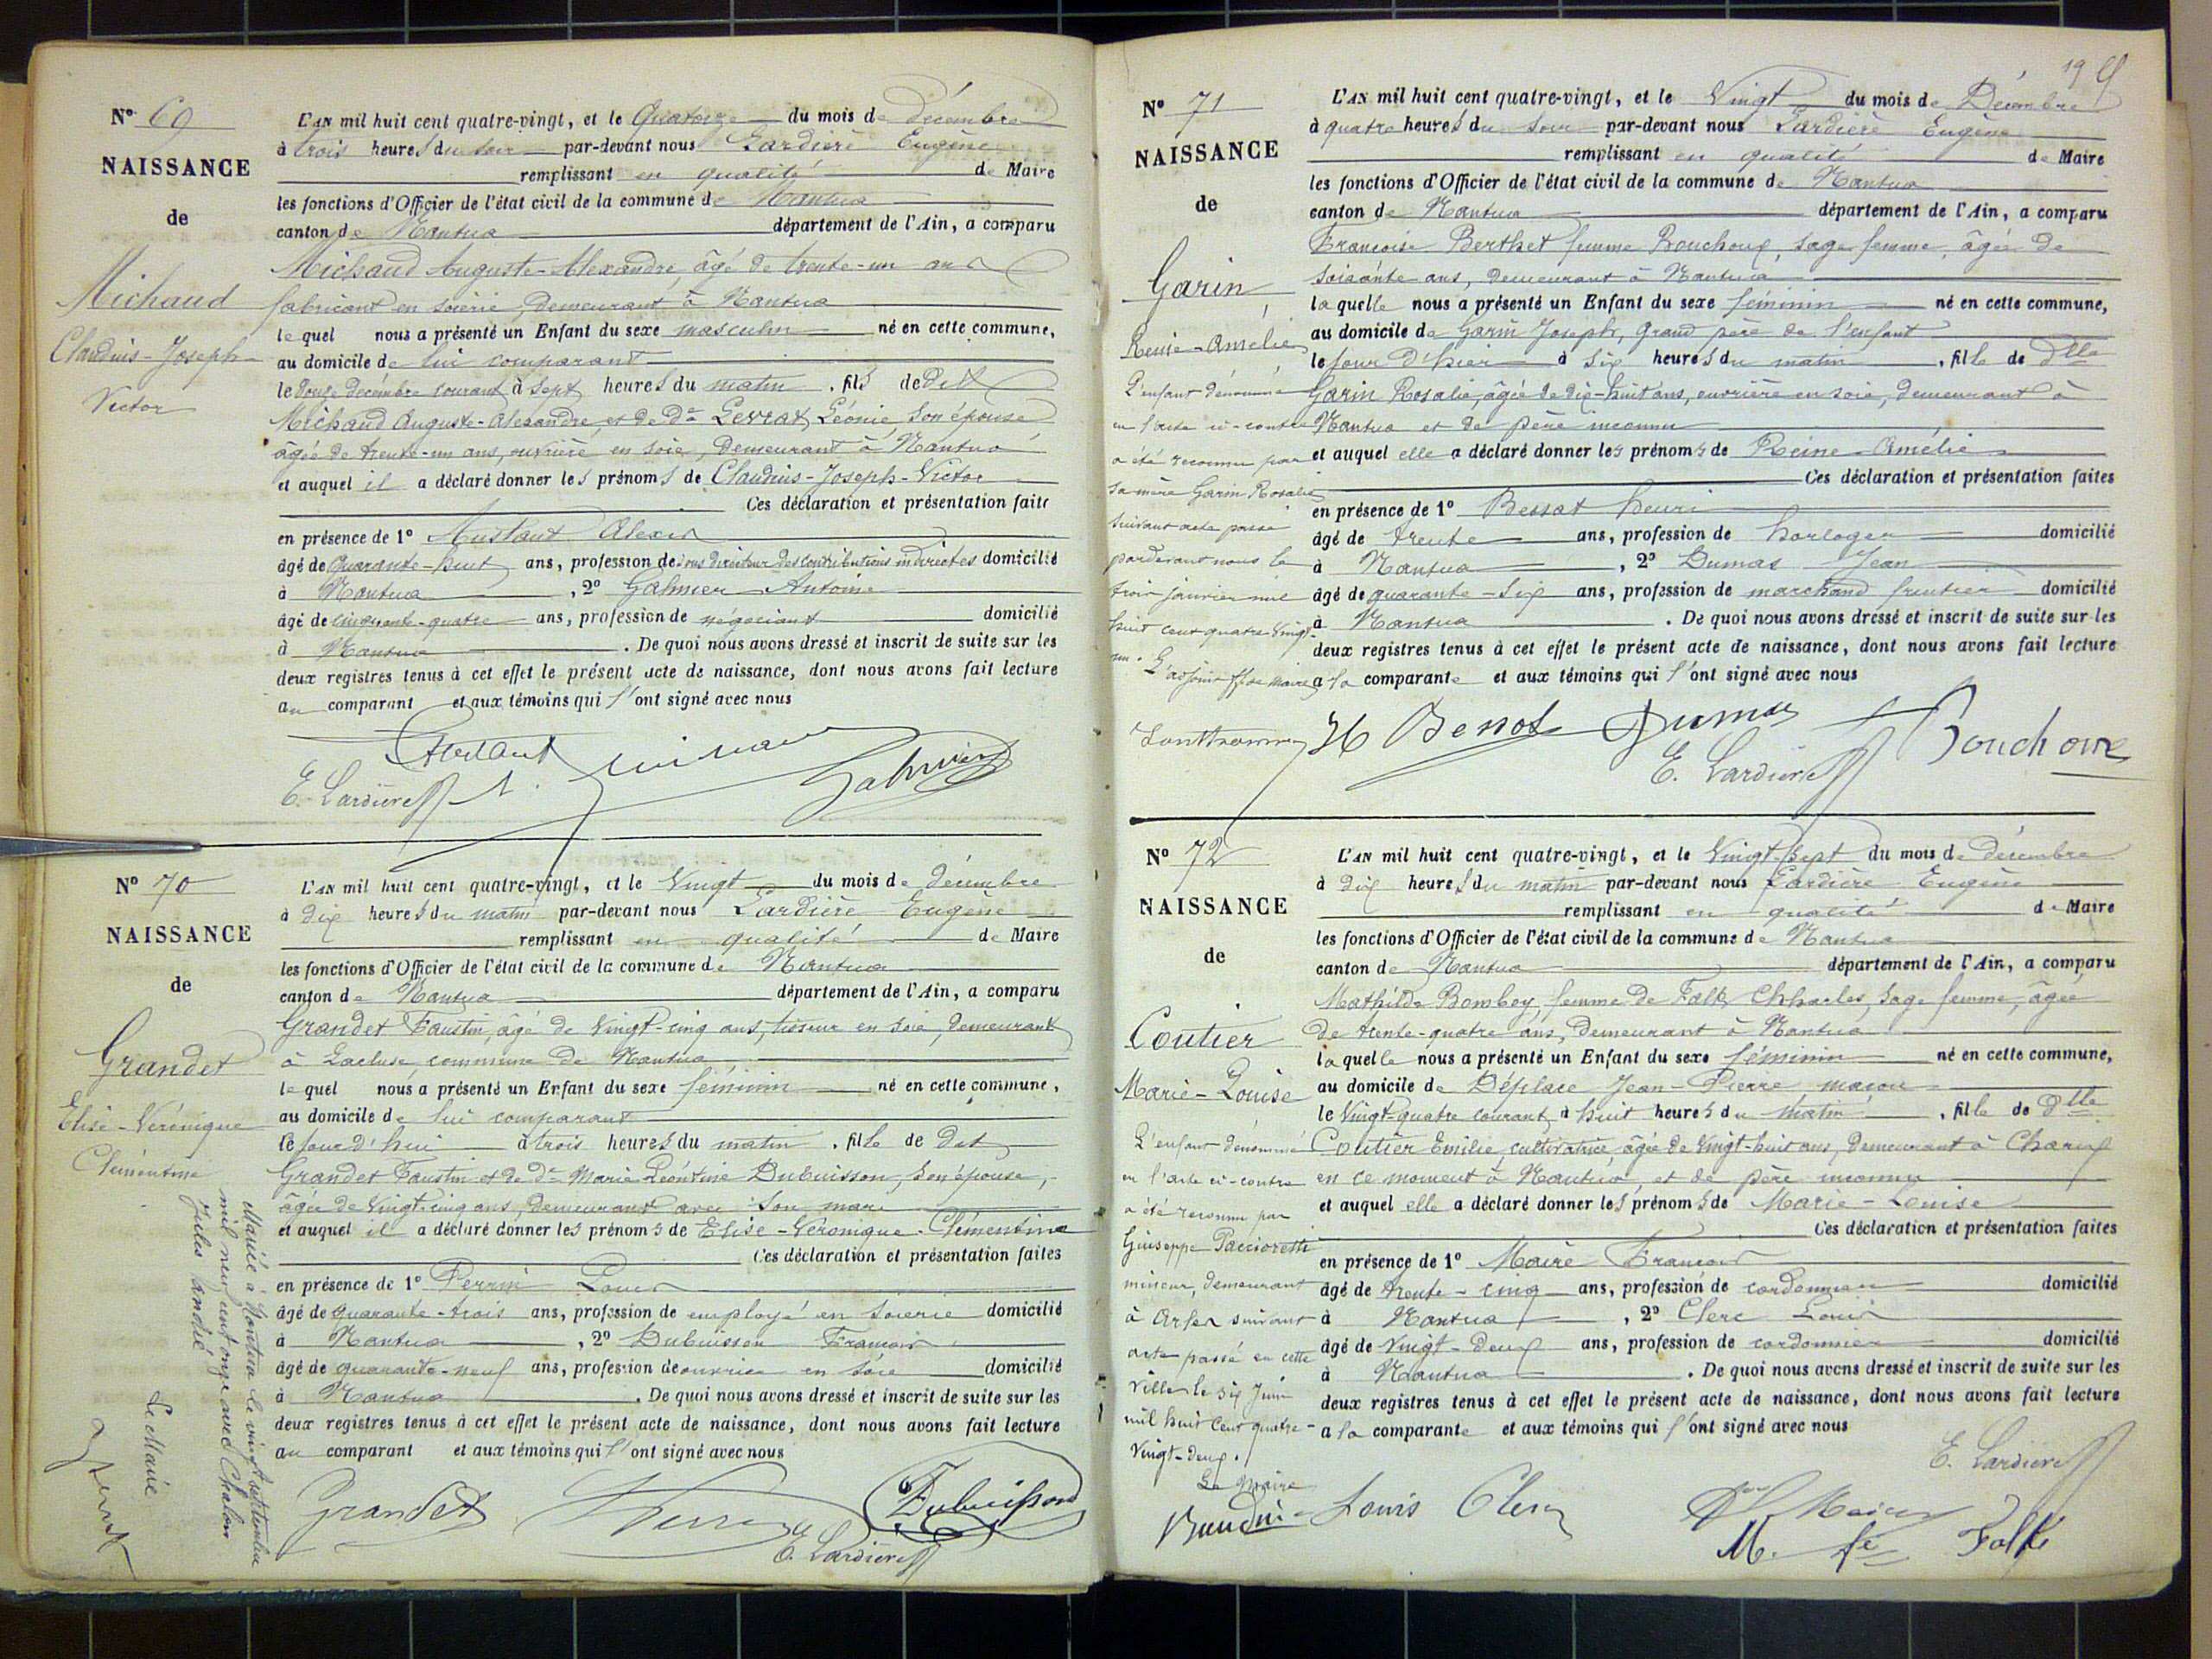 Nº 69
NAISSANCE
de
Michaud
Claudius-Joseph-
Victor
L'AN mil huit cent quatre-vingt, et le Quatorze du mois de décembre
à trois heures du soir par-devant nous Lardière Eugène
remplissant en qualité de Maire
les fonctions d'Officier de l'état civil de la commune de Nantua
canton de Nantua département de l'Ain, a comparu
Michaud Auguste-Alexandre, âgé de trente-un ans
fabricant en soierie, demeurant à Nantua
lequel nous a présenté un Enfant du sexe masculin né en cette commune,
au domicile de lui comparant
le douze décembre courant à sept heures du matin, fils de dit
Michaud Auguste-Alexandre, et de De Levrat Léonie, son épouse
âgée de trente-un ans, ouvrière en soie, demeurant à Nantua
et auquel il a déclaré donner les prénoms de Claudius-Joseph-Victor
Ces déclaration et présentation faite
en présence de 1º Alexis
âgé de quarante-huit ans, profession de sous directeur des contributions indirectes domicilié
à Nantua, 2º Galmier Antoine
âgé de cinquante-quatre ans, profession de négociant domicilié
à Nantua. De quoi nous avons dressé et inscrit de suite sur les
deux registres tenus à cet effet le présent acte de naissance, dont nous avons fait lecture
au comparant et aux témoins qui l'ont signé avec nous
E. Lardière Galmier
Nº 70
NAISSANCE
de
Grandet
Elise-Véronique
Clémentine
L'AN mil huit cent quatre-vingt, et le Vingt du mois de décembre
à dix heures du matin par-devant nous Lardière Eugène
remplissant en qualité de Maire
les fonctions d'Officier de l'état civil de la commune de Nantua
canton de Nantua département de l'Ain, a comparu
Grandet Faustin, âgé de vingt-cinq ans, tisseur en soie, demeurant
à Lacluse, commune de Nantua
lequel nous a présenté un Enfant du sexe féminin né en cette commune,
au domicile de lui comparant
le jour d'hui à trois heures du matin, fille de dit
Grandet Faustin et de De Marie Léontine Dubuisson, son épouse,
âgée de vingt-cinq ans, demeurant avec son mari
et auquel il a déclaré donner les prénoms de Elise-Véronique-Clémentine
Ces déclaration et présentation faites
en présence de 1º Perrin Louis
âgé de quarante-trois ans, profession de employé en soierie domicilié
à Nantua, 2º Dubuisson François
âgé de quarante-neuf ans, profession de ouvrier en soie domicilié
à Nantua. De quoi nous avons dressé et inscrit de suite sur les
deux registres tenus à cet effet le présent acte de naissance, dont nous avons fait lecture
au comparant et aux témoins qui l'ont signé avec nous
Mariée à Nantua le vingt septembre
mil neuf cent onze avec Chalon
Jules André
Le Maire
Grandet Perrin Dubuisson
E. Lardière
19
Nº 71
NAISSANCE
de
Garin
Reine-Amélie
L'enfant dénommé
en l'acte ci-contre
a été reconnu par
sa mère Garin Rosalie
suivant acte passé
pardevant nous le
trois janvier mil
huit cent quatre vingt-
un.
L'adjoint ff de maire
L'AN mil huit cent quatre-vingt, et le Vingt du mois de Décembre
à quatre heures du soir par-devant nous Lardière Eugène
remplissant en qualité de Maire
les fonctions d'Officier de l'état civil de la commune de Nantua
canton de Nantua département de l'Ain, a comparu
Françoise Berthet femme Bouchoux, sage femme, âgée de
soixante ans, demeurant à Nantua
laquelle nous a présenté un Enfant du sexe féminin né en cette commune,
au domicile de Garin Joseph, grand père de l'enfant
le jour d'hier à six heures du matin, fille de Dlle
Garin Rosalie, âgée de dix-huit ans, ouvrière en soie, demeurant à
Nantua et de père inconnu
et auquel elle a déclaré donner les prénoms de Reine-Amélie
Ces déclaration et présentation faites
en présence de 1º Bessot Henri
âgé de trente ans, profession de horloger domicilié
à Nantua, 2º Dumas Jean
âgé de quarante-six ans, profession de marchand fruitier domicilié
à Nantua. De quoi nous avons dressé et inscrit de suite sur les
deux registres tenus à cet effet le présent acte de naissance, dont nous avons fait lecture
a la comparante et aux témoins qui l'ont signé avec nous
H Bessot Dumas F Bouchoux
E. Lardière
Nº 72
NAISSANCE
de
Coutier
Marie-Louise
L'enfant dénommé
en l'acte ci-contre
a été reconnu par
Giuseppe Paccioretti
mineur, demeurant
à suivant
acte passé en cette
ville le six Juin
mil huit cent quatre-
vingt-deux.
Le Maire
Baudin
L'AN mil huit cent quatre-vingt, et le Vingt-sept du mois de décembre
à dix heures du matin par-devant nous Lardière Eugène
remplissant en qualité de Maire
les fonctions d'Officier de l'état civil de la commune de Nantua
canton de Nantua département de l'Ain, a comparu
Mathilde Bomboy, femme de Falk Chharles, sage femme, âgée
de trente-quatre ans, demeurant à Nantua
laquelle nous a présenté un Enfant du sexe féminin né en cette commune,
au domicile de Déplace Jean-Pierre maçon
le vingt-quatre courant à huit heures du matin, fille de Dlle
Coutier Emilie, cultivatrice, âgée de vingt-huit ans, demeurant à Charix
en ce moment à Nantua, et de père inconnu
et auquel elle a déclaré donner les prénoms de Marie-Louise
Ces déclaration et présentation faites
en présence de 1º Maire François
âgé de trente-cinq ans, profession de cordonnier domicilié
à Nantua, 2º Clerc Louis
âgé de vingt-deux ans, profession de cordonnier domicilié
à Nantua. De quoi nous avons dressé et inscrit de suite sur les
deux registres tenus à cet effet le présent acte de naissance, dont nous avons fait lecture
a la comparante et aux témoins qui l'ont signé avec nous
E. Lardière
Louis Clerc Maire
M. fe Falk